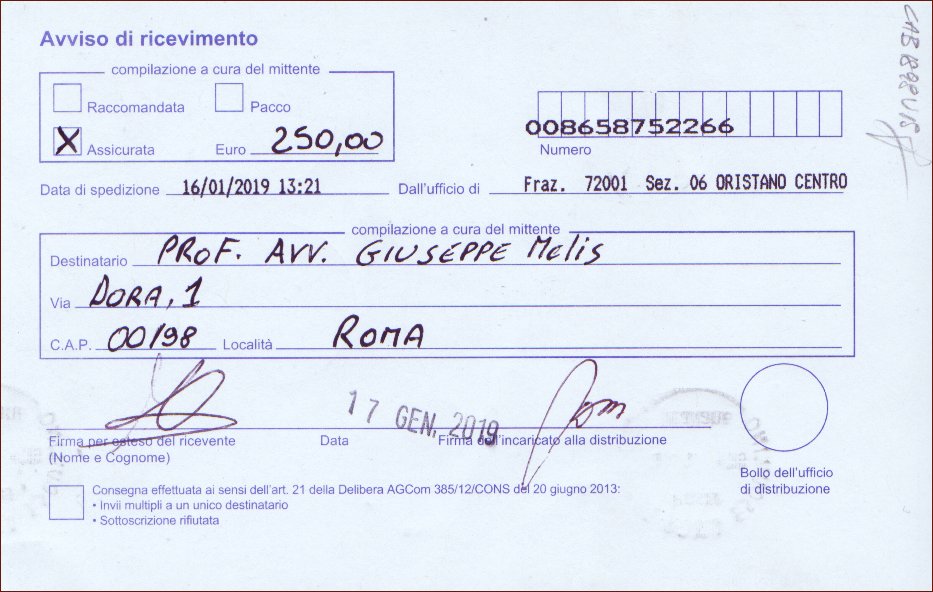 Avviso di ricevimento
compilazione a cura del mittente
Raccomandata Pacco
X Assicurata Euro 250,00
008658752266
Numero
Data di spedizione 16/01/2019 13:21 Dall'ufficio di Fraz. 72001 Sez. 06 ORISTANO CENTRO
compilazione a cura del mittente
Destinatario PROF. AVV. GIUSEPPE Melis
Via DORA, 1
C.A.P. 00198 Località ROMA
17 GEN. 2019
Firma per esteso del ricevente Data Firma dell'incaricato alla distribuzione
(Nome e Cognome)
Bollo dell'ufficio
di distribuzione
Consegna effettuata ai sensi dell'art. 21 della Delibera AGCom 385/12/CONS del 20 giugno 2013:
• Invii multipli a un unico destinatario
• Sottoscrizione rifiutata